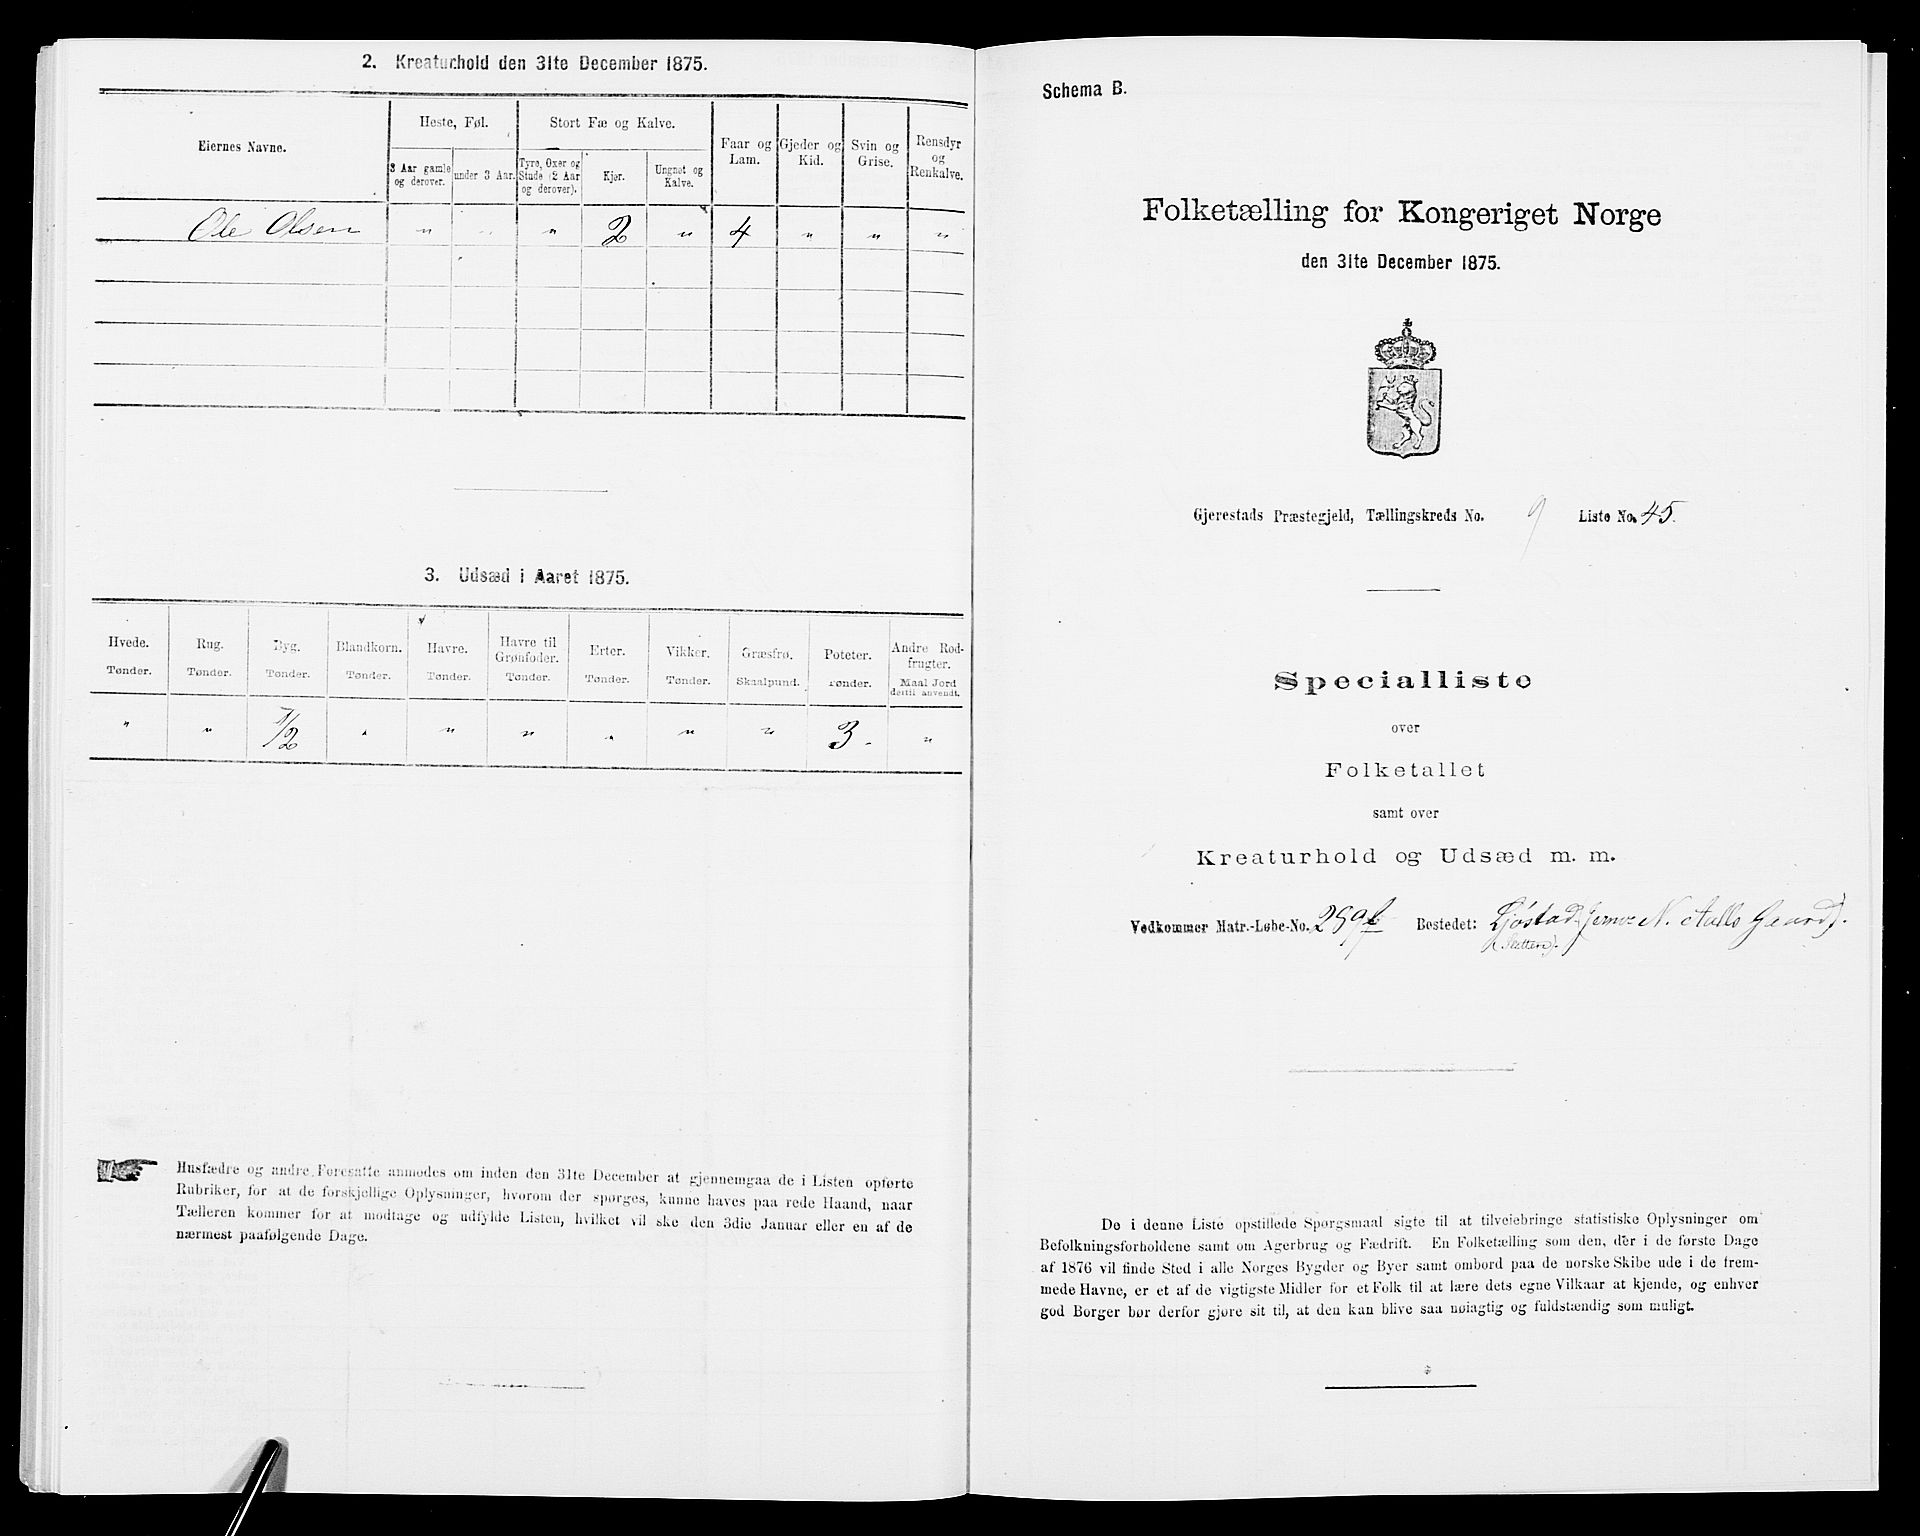 2. Kreaturhold den 31te December 1875.
Eiernes Navne.
Heste, Føl.
Stort Fæ og Kalve.
Faar og Lam.
Gjeder og Kid.
Svin og Grise.
Rensdyr og Renkalve.
3 Aar gamle og derover.
under 3 Aar.
Tyre, Oxer og Stude (2 Aar og derover).
Kjør.
Ungnet og Kalve.
Ole Olsen " " " 2 " 4 " " "
3. Udsæd i Aaret 1875.
Hvede. Rug. Byg. Blandkorn. Havre. Havre til Grønfoder. Erter. Vikker. Græsfrø. Poteter. Andre Rodfrugter.
Tønder. Tønder. Tønder. Tønder. Tønder. Tønder. Tønder. Tønder. Skaalpund. Tønder. Maal Jord dertil anvendt.
" " 1/2 " " " " " " 3 "
Husfædre og andre Foresatte anmodes om inden den 31te December at gjennemgaa de i Listen opførte
Rubriker, for at de forskjellige Oplysninger, hvorom der spørges, kunne haves paa rede Haand, naar
Tælleren kommer for at modtage og udfylde Listen, hvilket vil ske den 3die Januar eller en af de
nærmest paafølgende Dage.
Schema B.
Folketælling for Kongeriget Norge
den 31te December 1875.
Gjerestads Præstegjeld, Tællingskreds No. 9 Liste No. 45.
Specialliste
over
Folketallet
samt over
Kreaturhold og Udsæd m. m.
Vedkommer Matr.-Løbe-No. 289f Bostedet: N. Aalls Gaard).
De i denne Liste opstillede Spørgsmaal sigte til at tilveiebringe statistiske Oplysninger om
Befolkningsforholdene samt om Agerbrug og Fædrift. En Folketælling som den, der i de første Dage
af 1876 vil finde Sted i alle Norges Bygder og Byer samt ombord paa de norske Skibe ude i de frem-
mede Havne, er et af de vigtigste Midler for et Folk til at lære dets egne Vilkaar at kjende, og enhver
god Borger bør derfor gjøre sit til, at den kan blive saa nøiagtig og fuldstændig som muligt.